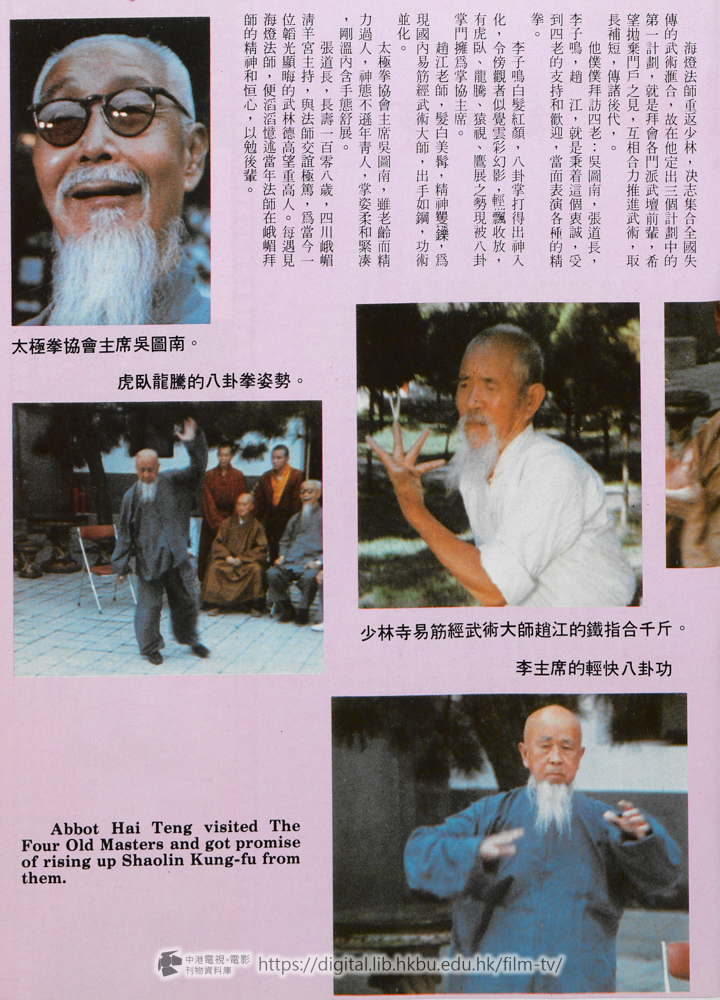 海燈法師重返少林，決志集合全國失
傳的武術滙合，故在他定出三個計劃中的
第一計劃，就是拜會各門派武壇前輩，希
望拋棄門戶之見，互相合力推進武術，取
長補短，傳諸後代，。
他僕僕拜訪四老：吳圖南，張道長，
李子鳴，趙　江，就是秉着這個衷誠，受
到四老的支持和歡迎，當面表演各種的精
拳。
李子鳴白髮紅顏，八卦掌打得出神入
化，令傍觀者似覺雲彩幻影，輕飄收放，
有虎臥、龍騰、猿視、鷹展之勢現被八卦
掌門擁爲掌協主席。
趙江老師，髮白美髯，精神矍鑠，爲
現國內易筋經武術大師，出手如鋼，功術
並化。
太極拳協會主席吳圖南，雖老齡而精
力過人，神態不遜年靑人，掌姿柔和緊凑
，剛溫內含手態舒展。
張道長，長壽一百零八歲，四川峨嵋
淸羊宮主持，與法師交誼極篤，爲當今一
位韜光顯晦的武林德高望重高人。每遇見
海燈法師，便滔滔憶述當年法師在峨嵋拜
師的精神和恒心，以勉後輩。
太極拳協會主席吳圖南。
虎臥龍騰的八卦拳姿勢。
少林寺易筋經武術大師趙江的鐵指合千斤。
李主席的輕快八卦功
Abbot Hai Teng visited The
Four Old Masters and got promise
of rising up Shaolin Kung-fu from
them.
中港電視·電影
刊物資料庫
https://digital.lib.hkbu.edu.hk/film-tv/